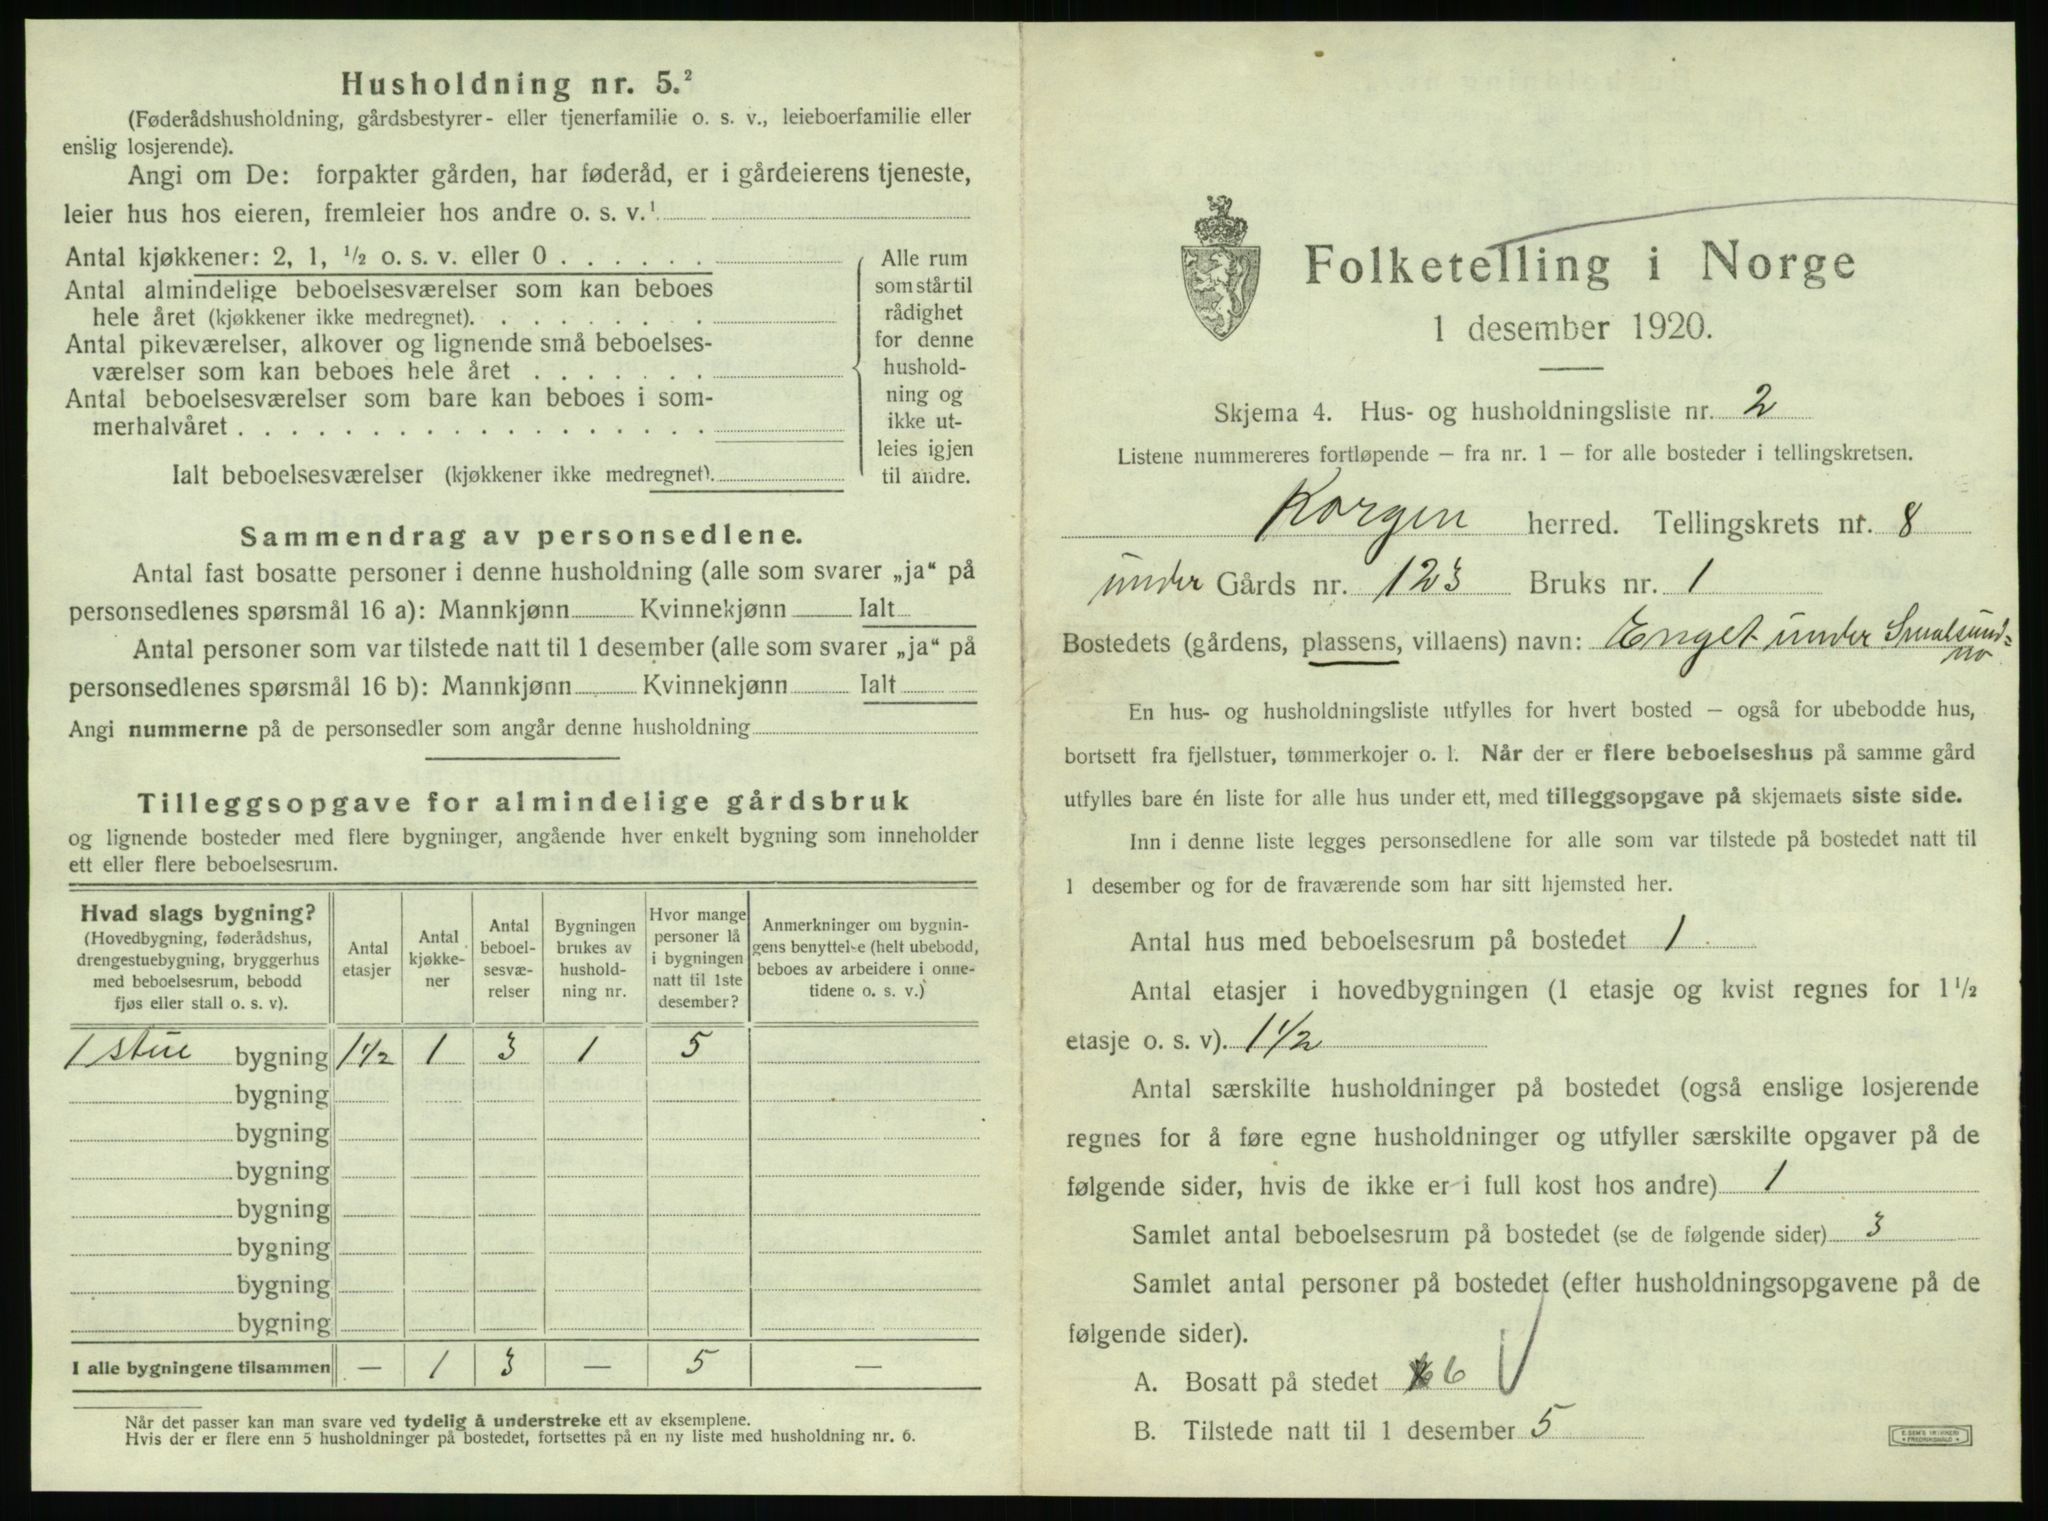 Husholdning nr. 5.²
(Føderådshusholdning, gårdsbestyrer- eller tjenerfamilie o. s. v., leieboerfamilie eller
enslig losjerende).
Angi om De: forpakter gården, har føderåd, er i gårdeierens tjeneste,
leier hus hos eieren, fremleier hos andre o. s. v.¹
Antal kjøkkener: 2, 1, ½ o. s. v. eller 0 . . . . . .
Antal almindelige beboelsesværelser som kan beboes
hele året (kjøkkener ikke medregnet). . . . . . . .
Antal pikeværelser, alkover og lignende små beboelses-
værelser som kan beboes hele året . . . . . . .
Antal beboelsesværelser som bare kan beboes i som-
merhalvåret . . . . . . . . . . . . . . . . . .
Ialt beboelsesværelser (kjøkkener ikke medregnet).
Alle rum
som står til
rådighet
for denne
hushold-
ning og
ikke ut-
leies igjen
til andre.
Sammendrag av personsedlene.
Antal fast bosatte personer i denne husholdning (alle som svarer „ja“ på
personsedlenes spørsmål 16 a): Mannkjønn Kvinnekjønn Ialt
Antal personer som var tilstede natt til 1 desember (alle som svarer „ja“ på
personsedlenes spørsmål 16 b): Mannkjønn Kvinnekjønn Ialt
Angi nummerne på de personsedler som angår denne husholdning
Tilleggsopgave for almindelige gårdsbruk
og lignende bosteder med flere bygninger, angående hver enkelt bygning som inneholder
ett eller flere beboelsesrum.
Hvad slags bygning?
(Hovedbygning, føderådshus,
drengestuebygning, bryggerhus
med beboelsesrum, bebodd
fjøs eller stall o. s. v).
Antal
etasjer
Antal
kjøkke-
ner
Antal
beboel-
sesvæ-
relser
Bygningen
brukes av
hushold-
ning nr.
Hvor mange
personer lå
i bygningen
natt til 1ste
desember?
Anmerkninger om bygnin-
gens benyttelse (helt ubebodd,
beboes av arbeidere i onne-
tidene o. s. v.)
1 stue bygning 1½ 1 3 1 5
bygning
bygning
bygning
bygning
bygning
bygning
bygning
I alle bygningene tilsammen — 1 3 — 5 —
Når det passer kan man svare ved tydelig å understreke ett av eksemplene.
Hvis der er flere enn 5 husholdninger på bostedet, fortsettes på en ny liste med husholdning nr. 6.
Folketelling i Norge
1 desember 1920.
Skjema 4. Hus- og husholdningsliste nr. 2
Listene nummereres fortløpende – fra nr. 1 – for alle bosteder i tellingskretsen.
Korgen herred. Tellingskrets nr. 8
under Gårds nr. 123 Bruks nr. 1
Bostedets (gårdens, plassens, villaens) navn: Enget under Smalsund=
mo
En hus- og husholdningsliste utfylles for hvert bosted – også for ubebodde hus,
bortsett fra fjellstuer, tømmerkojer o. l. Når der er flere beboelseshus på samme gård
utfylles bare én liste for alle hus under ett, med tilleggsopgave på skjemaets siste side.
Inn i denne liste legges personsedlene for alle som var tilstede på bostedet natt til
1 desember og for de fraværende som har sitt hjemsted her.
Antal hus med beboelsesrum på bostedet 1
Antal etasjer i hovedbygningen (1 etasje og kvist regnes for 1½
etasje o. s. v). 1½
Antal særskilte husholdninger på bostedet (også enslige losjerende
regnes for å føre egne husholdninger og utfyller særskilte opgaver på de
følgende sider, hvis de ikke er i full kost hos andre) 1
Samlet antal beboelsesrum på bostedet (se de følgende sider) 3
Samlet antal personer på bostedet (efter husholdningsopgavene på de
følgende sider).
A. Bosatt på stedet 6
B. Tilstede natt til 1 desember 5